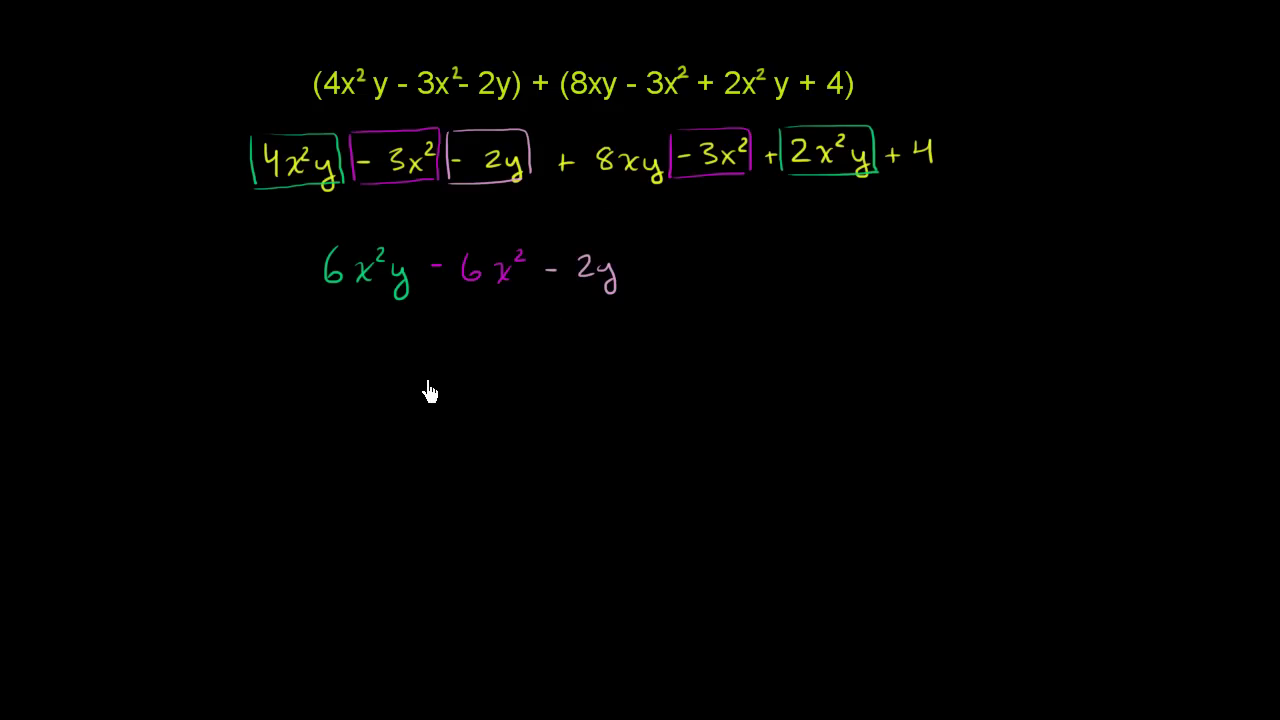 (4x² y - 3x² - 2y) + (8xy - 3x² + 2x² y + 4)
4x²y - 3x² - 2y + 8xy - 3x² + 2x²y + 4
6x²y - 6x² - 2y